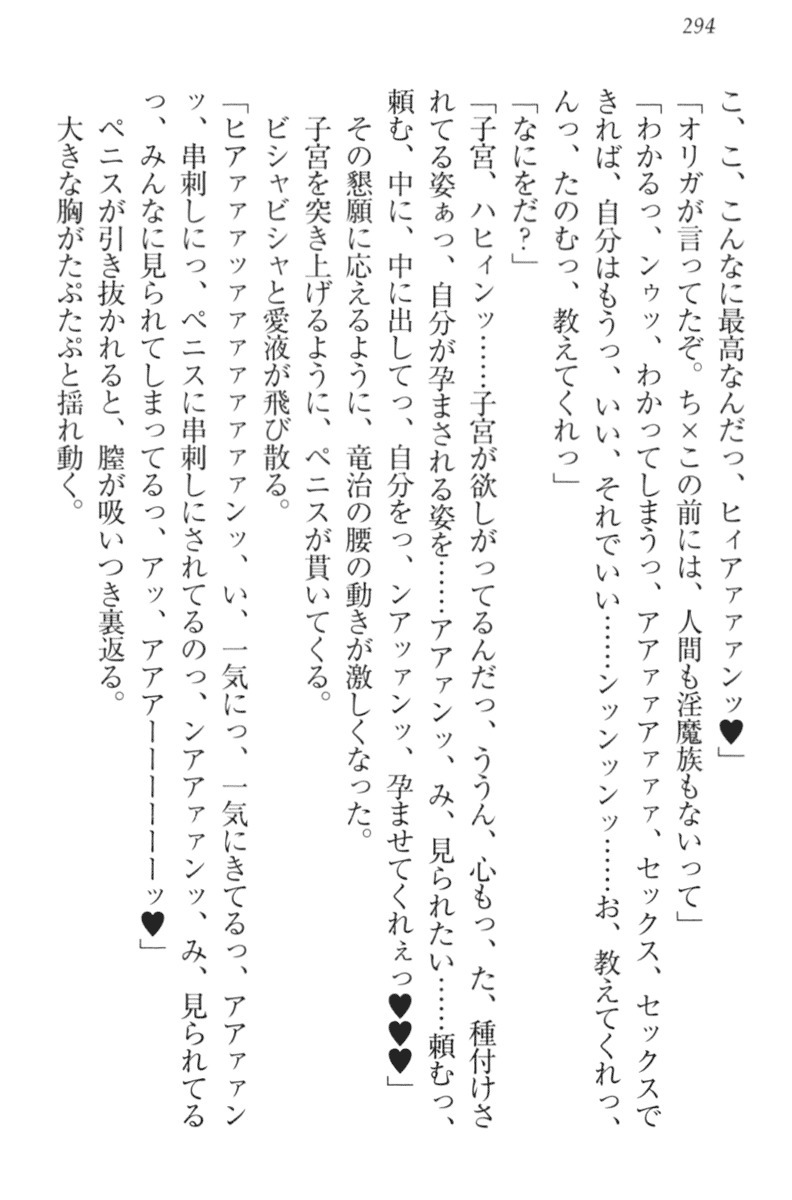 294
こ、こ、こんなに最高なんだっ、ヒィアァァァンッ♥」
「オリガが言ってたぞ。ち×この前には、人間も淫魔族もないって」
「わかるっ、ンゥッ、わかってしまうっ、アアァァアァァァ、セックス、セックスで
きれば、自分はもうっ、いい、それでいい……ンッンッンッ……お、教えてくれっ、
んっ、たのむっ、教えてくれっ」
「なにをだ？」
「子宮、ハヒィンッ……子宮が欲しがってるんだっ、ううん、心もっ、た、種付けさ
れてる姿ぁっ、自分が孕まされる姿を……アアァンッ、み、見られたい……頼むっ、
頼む、中に、中に出してっ、自分をっ、ンアッァンッ、孕ませてくれぇっ♥♥♥」
その懇願に応えるように、竜治の腰の動きが激しくなった。
子宮を突き上げるように、ペニスが貫いてくる。
ビシャビシャと愛液が飛び散る。
「ヒアァァァツァアァアァアァァンッ、い、一気にっ、一気にきてるっ、アアァァン
ッ、串刺しにっ、ペニスに串刺しにされてるのっ、ンアアァァンッ、み、見られてる
っ、みんなに見られてしまってるっ、アッ、アアアーーーーーーッ♥」
ペニスが引き抜かれると、膣が吸いつき裏返る。
大きな胸がたぷたぷと揺れ動く。